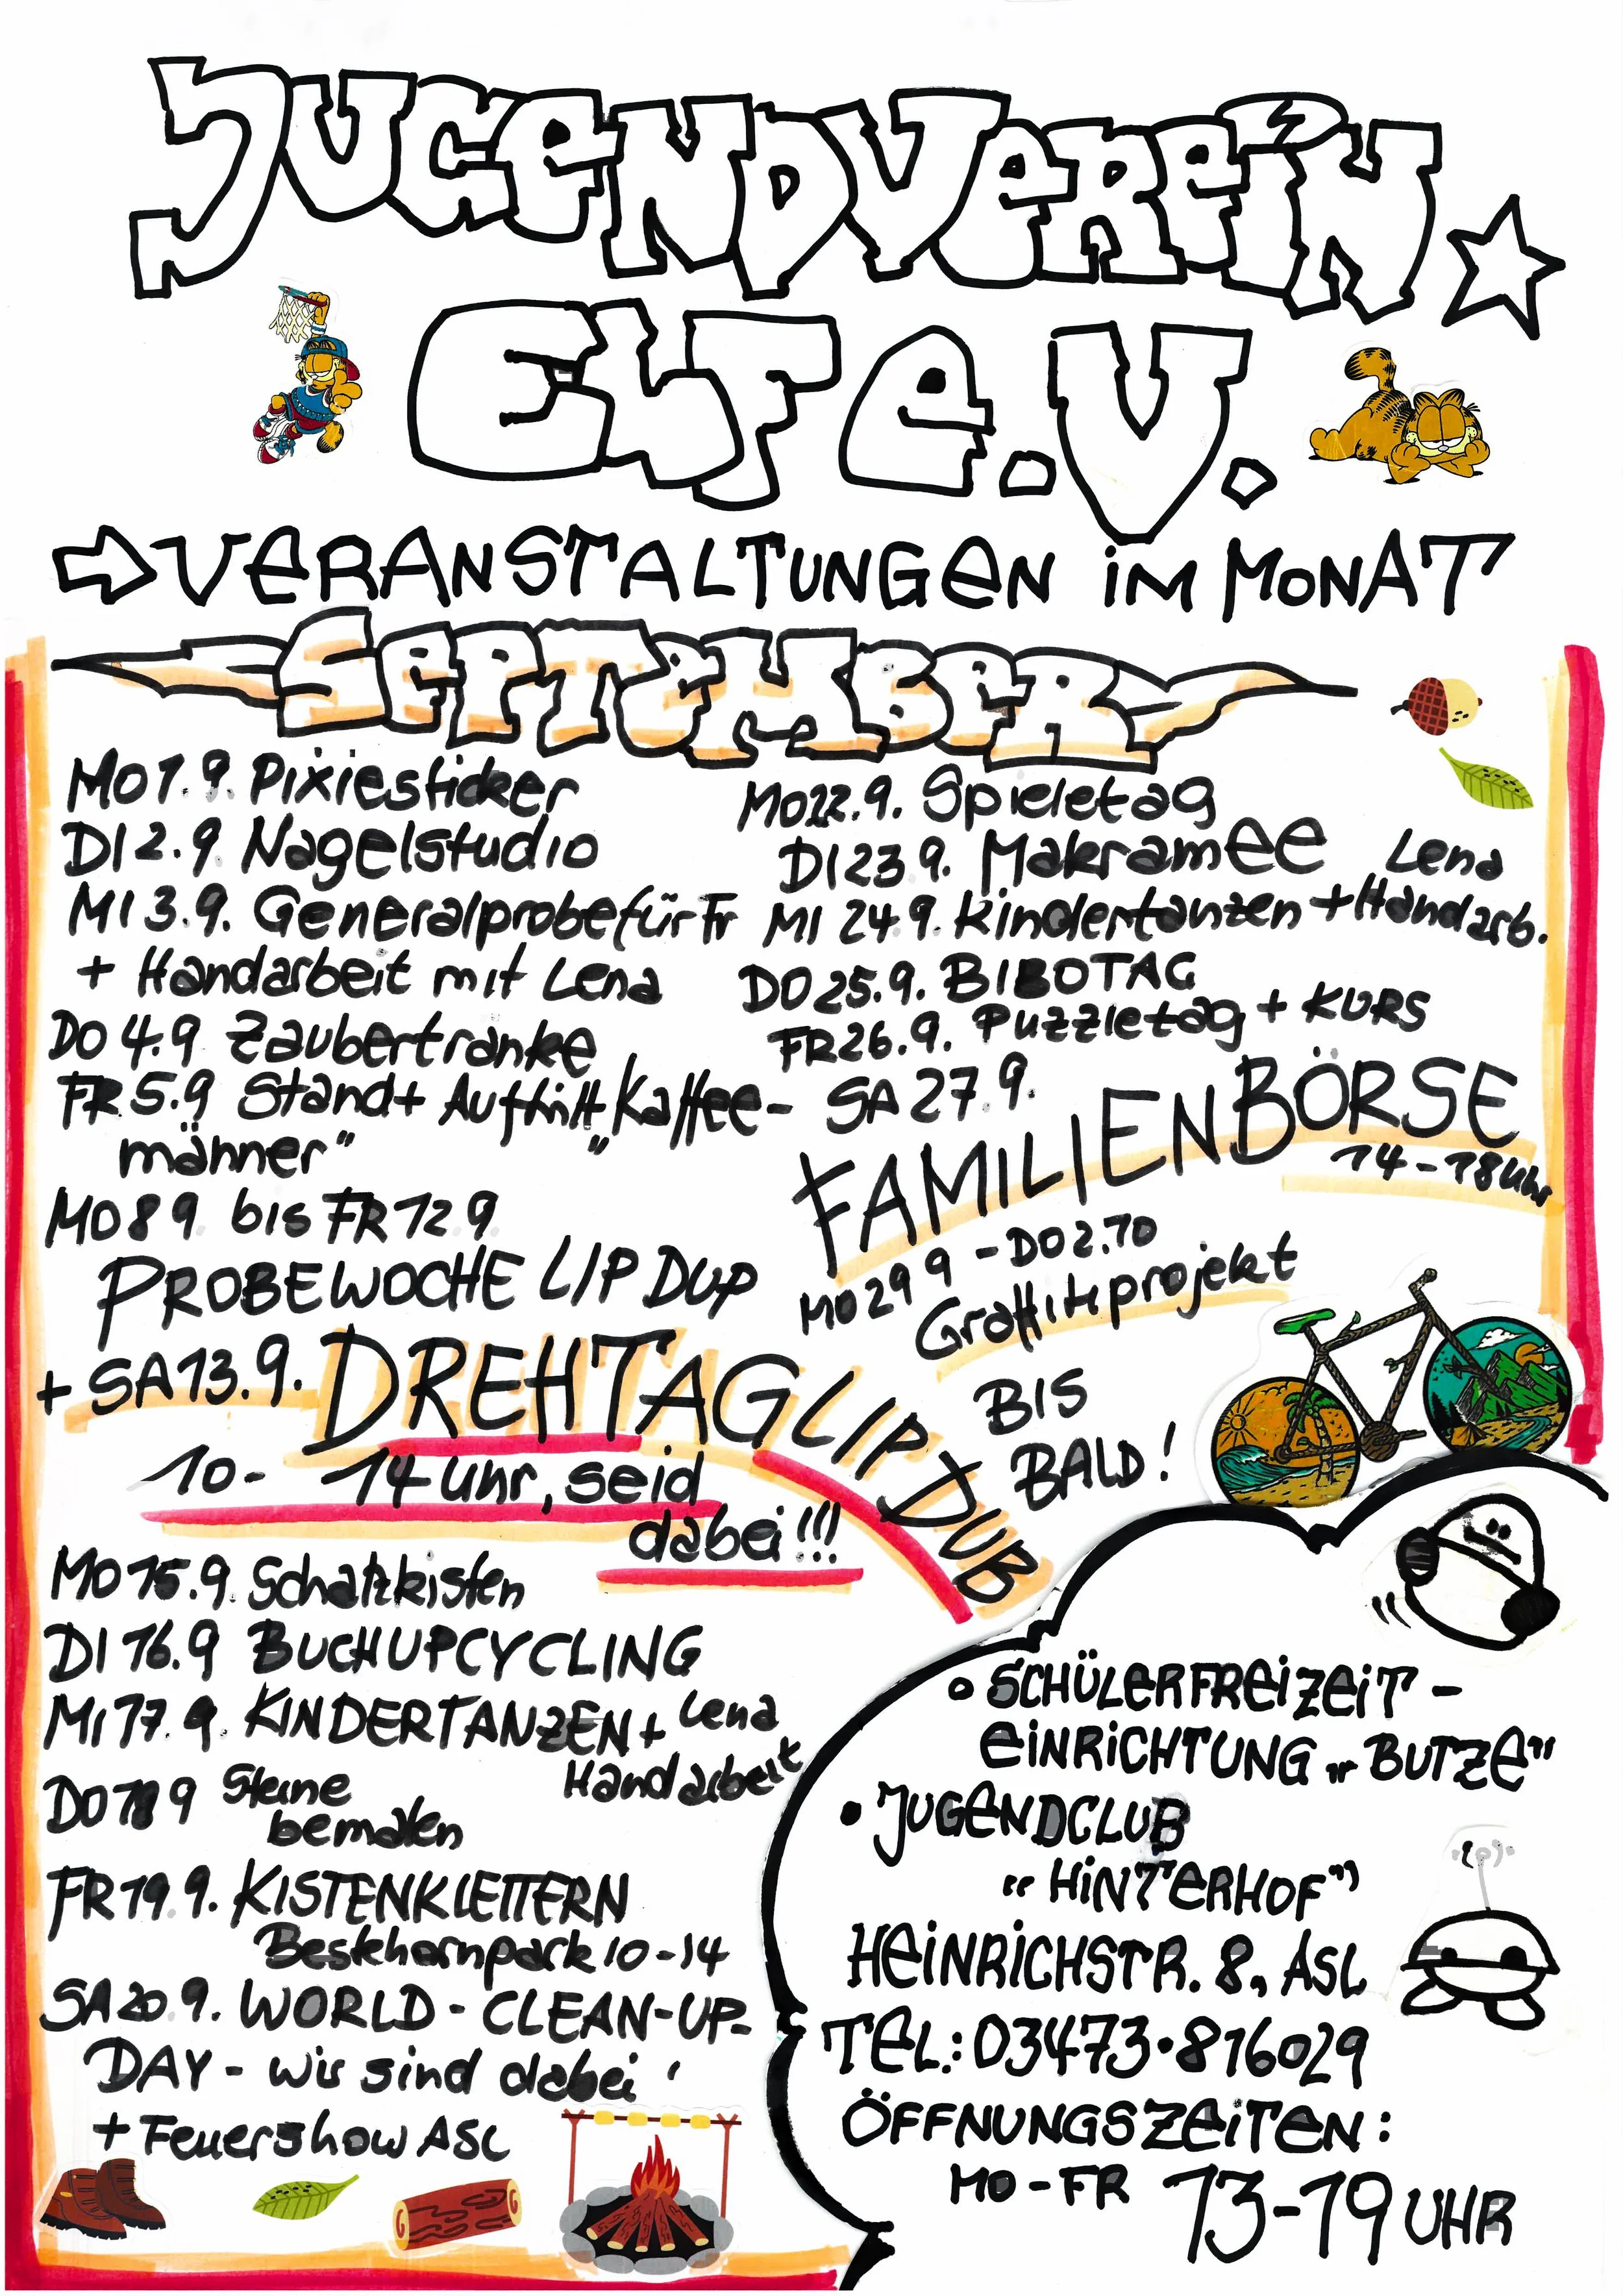 JUGENDVEREIN
ELF e.V.
VERANSTALTUNGEN IM MONAT
SEPTEMBER
MO 1.9. Pixiesticker
DI 2.9. Nagelstudio
MI 3.9. Generalprobe für Fr
+ Handarbeit mit Lena
DO 4.9 Zaubertränke
FR 5.9 Stand + Auftritt „Kaffee-
männer"
MO 8 9. bis FR 12 9.
PROBEWOCHE LIP DUP
+ SA 13.9. DREHTAG LIP DUB
10- 14 Uhr, seid
dabei!!!
MO 15.9. Schatzkisten
DI 16.9 BUCHUPCYCLING
MI 17.9. KINDERTANZEN + Lena
Handarbeit
DO 18 9 Steine
bemalen
FR 19 9. KISTENKLETTERN
Bestehornpark 10-14
SA 20 9. WORLD-CLEAN-UP-
DAY - wir sind dabei !
+ Feuershow ASL
MO 22.9. Spieletag
DI 23 9. Makramee Lena
MI 24.9. Kindertanzen + Handarb.
DO 25.9. BIBOTAG
FR 26.9. Puzzletag + KURS
SA 27.9.
FAMILIENBÖRSE
14-18 Uhr
MO 29 9 - DO 2.10
Graffitiprojekt
BIS
BALD!
• SCHÜLERFREIZEIT-
EINRICHTUNG „BUTZE"
• JUGENDCLUB
"HINTERHOF"
HEINRICHSTR. 8, ASL
TEL.: 03473·816029
ÖFFNUNGSZEITEN:
MO-FR 13-19 UHR